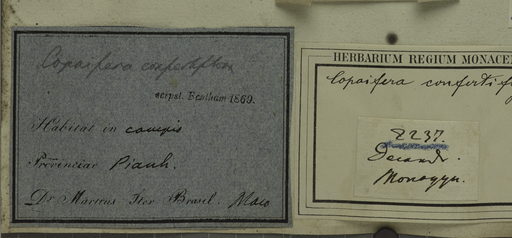 Copaifera confertiflora
scrpst. Bentham 1869.
Habitat in campis
Provinciae Piauh.
Dr. Martius Iter Brasil. Majo
HERBARIUM REGIUM MONACEN
Copaifera confertif
2237.
Decandr.
Monogyn.